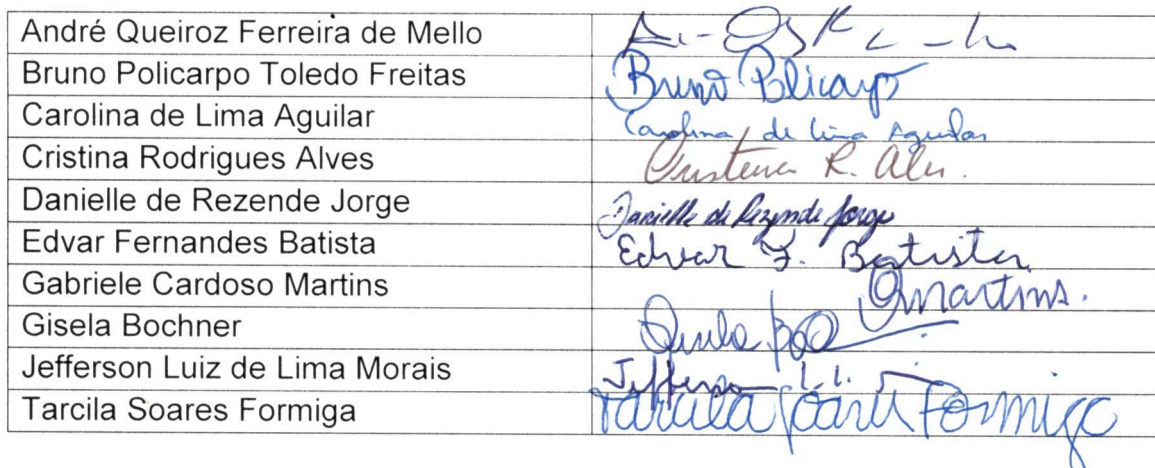 André Queiroz Ferreira de Mello
Bruno Policarpo Toledo Freitas Bruno Policarpo
Carolina de Lima Aguilar Carolina de Lima Aguilar
Cristina Rodrigues Alves Cristina R. Alves.
Danielle de Rezende Jorge Danielle de Rezende Jorge
Edvar Fernandes Batista Edvar F. Batista
Gabriele Cardoso Martins GMartins.
Gisela Bochner Gisela
Jefferson Luiz de Lima Morais Jefferson L. L.
Tarcila Soares Formiga Tarcila Soares Formiga